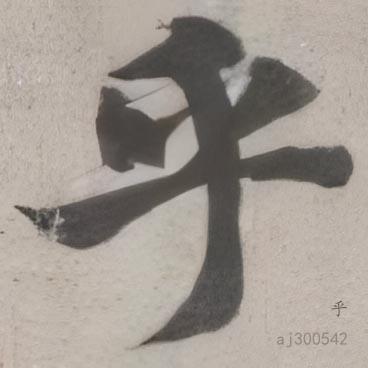 乎
乎
aj300542